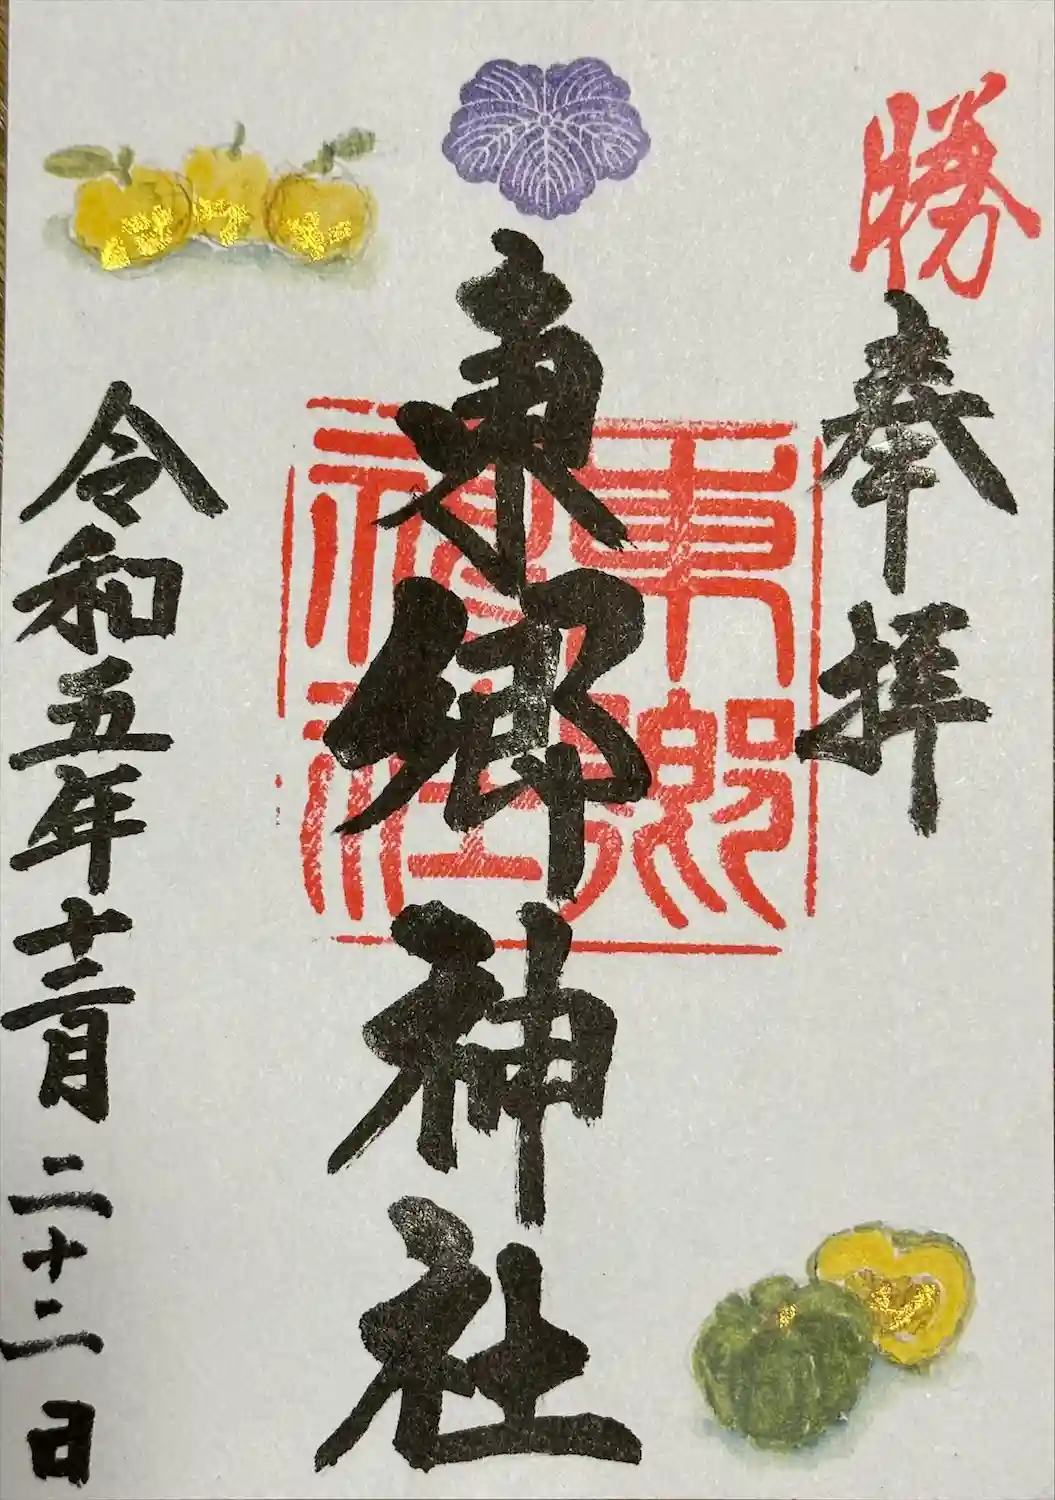 勝
奉拝
東郷神社
東郷
神社
令和五年十二月二十二日